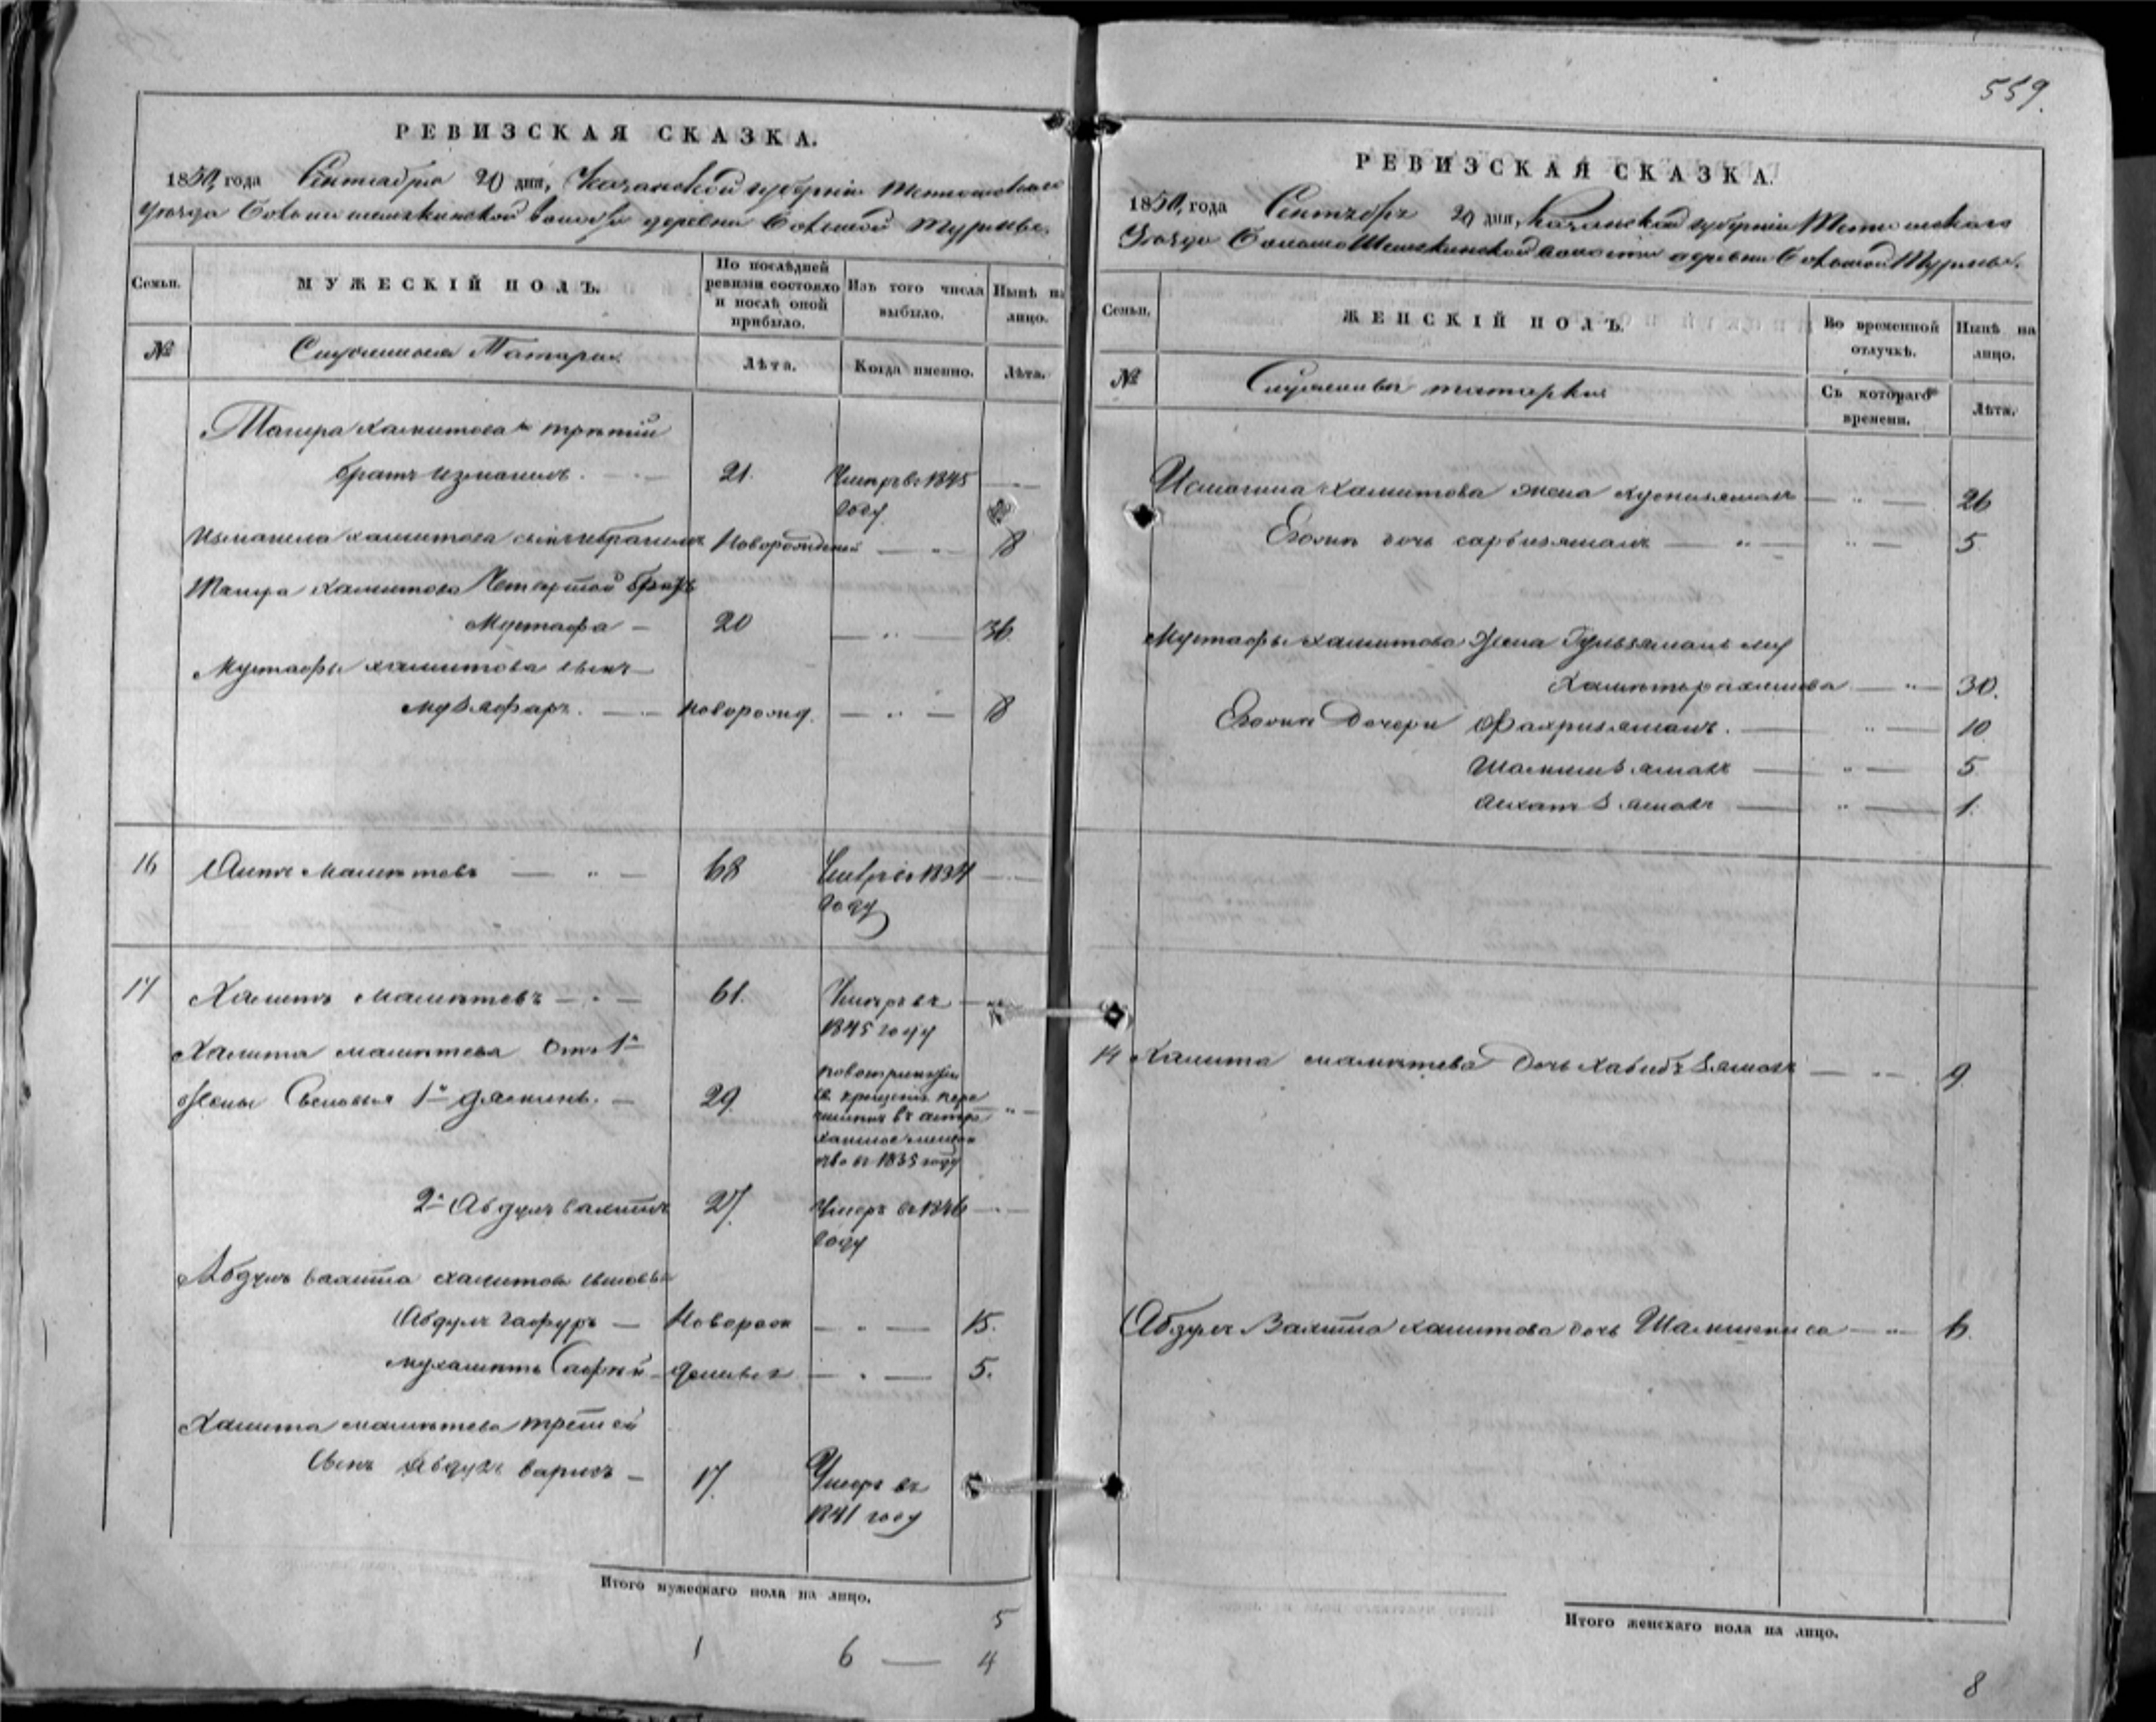 559.
РЕВИЗСКАЯ СКАЗКА.
1850, года Сентября 20 дня, Казанской губернии Тетюшскаго
Уезда Большешемякинской волости деревни Большой Турмы.
Семьи.
МУЖЕСКІЙ ПОЛЪ.
По послѣдней ревизіи состояло и послѣ оной прибыло.
Изъ того числа выбыло.
Нынѣ на лицо.
№
Служилыя Татары
Лѣта.
Когда именно.
Лѣта.
Тагира Хамитова третий
братъ Измаилъ. 21. Умеръ въ 1845
году
Измаила Хамитова сынъ Ибрагимъ Новорожденный — 8
Тагира Хамитова Четвертой братъ
Мустафа — 20 — " — 36
Мустафы Хамитова сынъ
Музафаръ. — новорожд. — " — 8
16 Маметевъ — " — 68 Умеръ въ 1834
году
17 Хамитъ Маметевъ — " — 61. Умеръ въ
1845 году
Хамита Маметева Отъ 1й
жены Сыновья 1й — 29
въ 1835 году
2й Абдулъ Валитъ 27. Умеръ въ 1846
году
Абдулъ Валита Хамитова сыновья
Абдулъ Гафуръ — Новорож — " — 15.
Мухаметь Сафей — денные — " — 5.
Хамита Маметева третей
сынъ Абдулъ Варисъ — 17. Умеръ въ
1841 году
Итого мужескаго пола на лицо.
5
1 6 — 4
РЕВИЗСКАЯ СКАЗКА.
1850, года Сентября 20 дня, Казанской губернии Тетюшскаго
Уезда Большешемякинской волости деревни Большой Турмы.
Семьи.
ЖЕНСКІЙ ПОЛЪ.
Во временной отлучкѣ.
Нынѣ на лицо.
№
Служилыя татарки
Съ котораго времени.
Лѣта.
Исмагила Хамитова жена — " — 26
Ево дочь — " — 5
Мустафы Хамитова Жена Гульзямалъ
— " — 30.
Дочери Фахризямалъ. — " — 10
— " — 5
— " — 1.
17 Хамита Маметева Дочь Хабибъ Зямалъ — " — 9
Абдулъ Валита Хамитова дочь — " — 6
Итого женскаго пола на лицо.
8